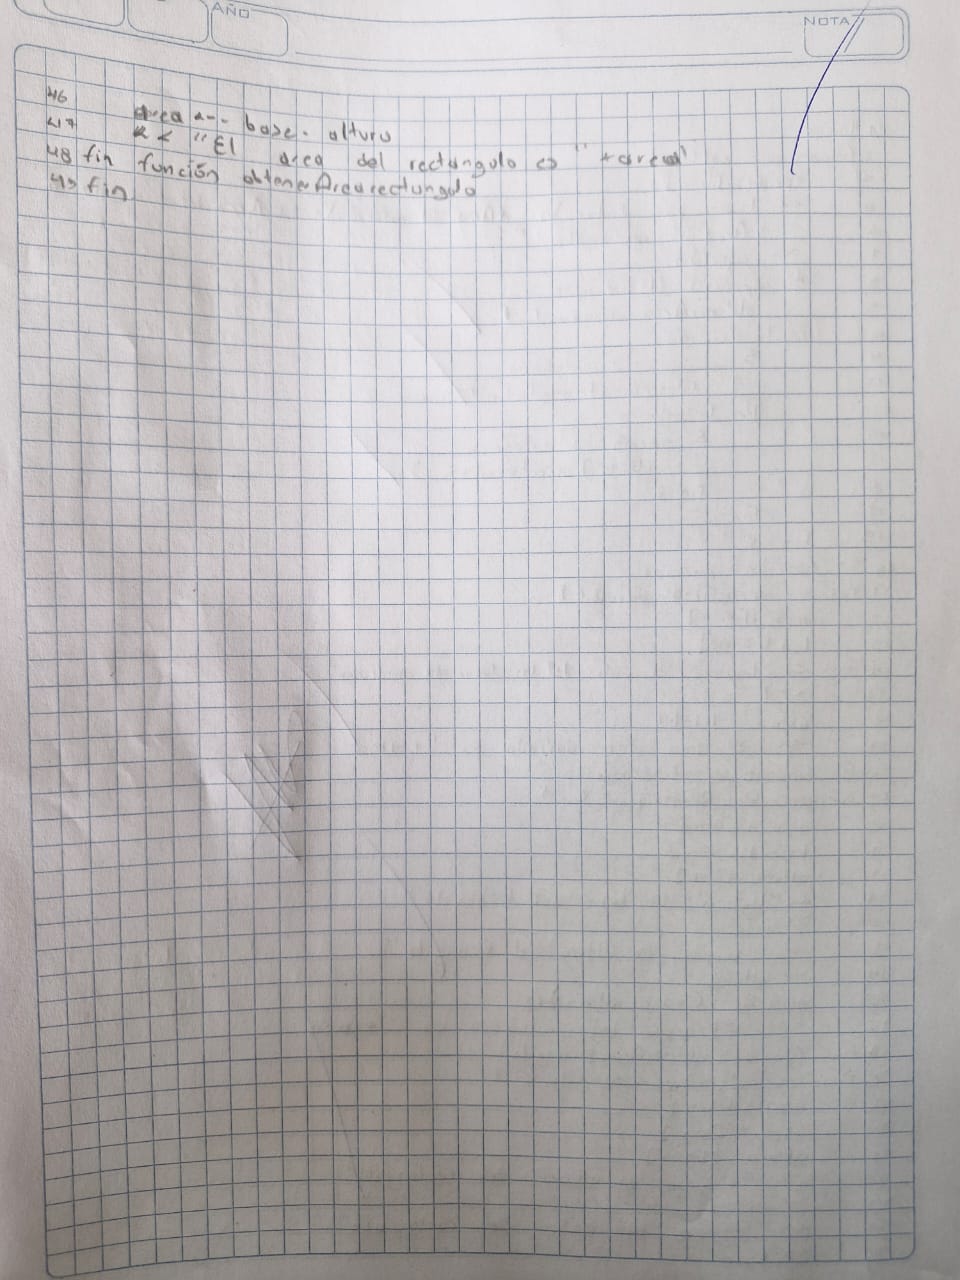 AÑO
NOTA
46 area <-- base . altura
47 << "El area del rectangulo es " + area
48 fin función obtenerArearectangulo
49 fin